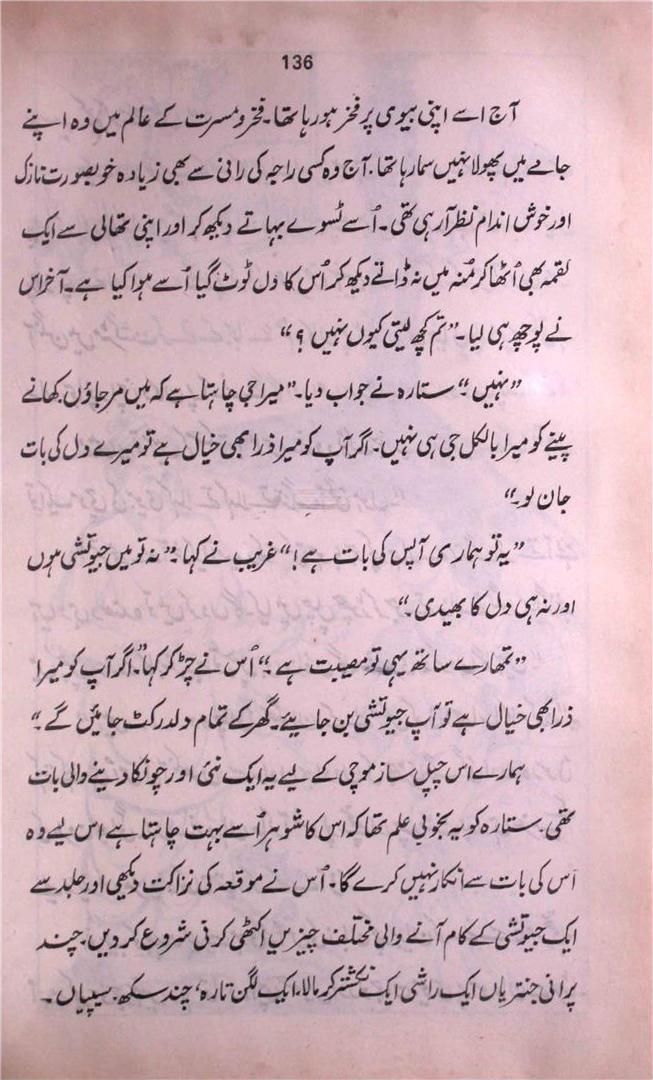 136
آج اسے اپنی بیوی پر فخر ہو رہا تھا۔ فخر و مسرت کے عالم میں وہ اپنے
جامے میں پھولا نہیں سما رہا تھا۔ آج وہ کسی راجہ کی رانی سے بھی زیادہ خوبصورت نازک
اور خوش اندام نظر آ رہی تھی۔ اُسے ٹسوے بہاتے دیکھ کر اور اپنی تھالی سے ایک
لقمہ بھی اُٹھا کر مُنہ میں نہ ڈالتے دیکھ کر اُس کا دل ٹوٹ گیا اُسے ہوا کیا ہے۔ آخر اس
نے پوچھ ہی لیا۔ ”تم کچھ لیتی کیوں نہیں ؟“
”نہیں“ ستارہ نے جواب دیا۔ ”میرا جی چاہتا ہے کہ میں مر جاؤں کھانے
پینے کو میرا بالکل جی ہی نہیں۔ اگر آپ کو میرا ذرا بھی خیال ہے تو میرے دل کی بات
جان لو۔“
”یہ تو ہماری آپس کی بات ہے!“ غریب نے کہا۔ ”نہ تو میں جیوتشی ہوں
اور نہ ہی دل کا بھیدی۔“
”تمہارے ساتھ یہی تو مصیبت ہے۔“ اُس نے چڑ کر کہا۔ ”اگر آپ کو میرا
ذرا بھی خیال ہے تو آپ جیوتشی بن جایئے۔ گھر کے تمام دلدر کٹ جائیں گے۔“
ہمارے اس چپل ساز موچی کے لیے یہ ایک نئی اور چونکا دینے والی بات
تھی۔ ستارہ کو یہ بخوبی علم تھا کہ اس کا شوہر اُسے بہت چاہتا ہے اس لیے وہ
اس کی بات سے انکار نہیں کرے گا۔ اُس نے موقعہ کی نزاکت دیکھی اور جلد سے
ایک جیوتشی کے کام آنے والی مختلف چیزیں اکٹھی کرنی شروع کر دیں۔ چند
پرانی جنتریاں ایک راشی ایک نکشتر کر مالا، ایک لگن تارہ، چند سنکھ۔ سیپیاں۔